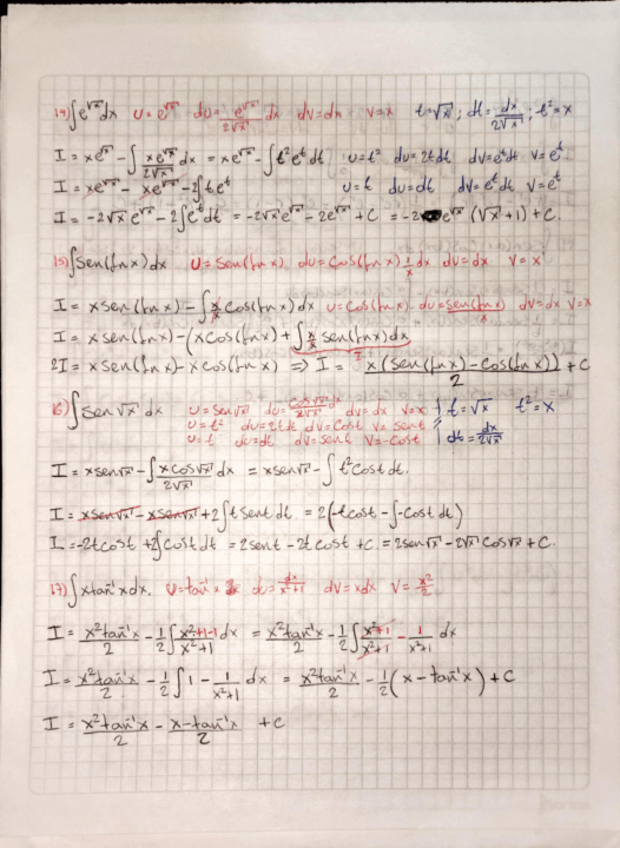 14) ∫e^√x dx   u = e^√x   du = e^√x/2√x dx   dv = dx   v = x   t = √x ; dt = dx/2√x ; t² = x
I = xe^√x - ∫ xe^√x/2√x dx = xe^√x - ∫t²e^t dt   u = t²   du = 2tdt   dv = e^t dt   v = e^t
I = xe^√x - xe^√x - 2∫te^t   u = t   du = dt   dv = e^t dt   v = e^t
I = -2√x e^√x - 2∫e^t dt = -2√x e^√x - 2e^√x + C = -2e^√x (√x + 1) + C.
15) ∫sen(ln x) dx   u = sen(ln x)   du = cos(ln x) 1/x dx   dv = dx   v = x
I = x sen(ln x) - ∫ x/x cos(ln x) dx   u = cos(ln x)   du = sen(ln x)/x   dv = dx   v = x
I = x sen(ln x) - (x cos(ln x) + ∫ x/x sen(ln x) dx
I
2I = x sen(ln x) - x cos(ln x) ⇒ I = x(sen(ln x) - cos(ln x))/2 + C
16) ∫sen√x dx   u = sen√x   du = cos√x dx/2√x   dv = dx   v = x   t = √x   t² = x
u = t²   du = 2tdt   dv = cost   v = sent
u = t   du = dt   dv = sent   v = -cost   dt = dx/2√x
I = xsen√x - ∫ xcos√x/2√x dx = xsen√x - ∫t²cost dt.
I = xsen√x - xsen√x + 2∫t sent dt = 2(-tcost - ∫-cost dt)
I = -2tcost + 2∫cost dt = 2sent - 2t cost + C = 2sen√x - 2√x cos√x + C.
17) ∫xtan⁻¹x dx.   u = tan⁻¹x   du = dx/x²+1   dv = xdx   v = x²/2
I = x²tan⁻¹x/2 - 1/2∫ x²+1-1/x²+1 dx = x²tan⁻¹x/2 - 1/2∫ x²+1/x²+1 - 1/x²+1 dx
I = x²tan⁻¹x/2 - 1/2∫1 - 1/x²+1 dx = x²tan⁻¹x/2 - 1/2(x - tan⁻¹x) + C
I = x²tan⁻¹x/2 - x-tan⁻¹x/2 + C